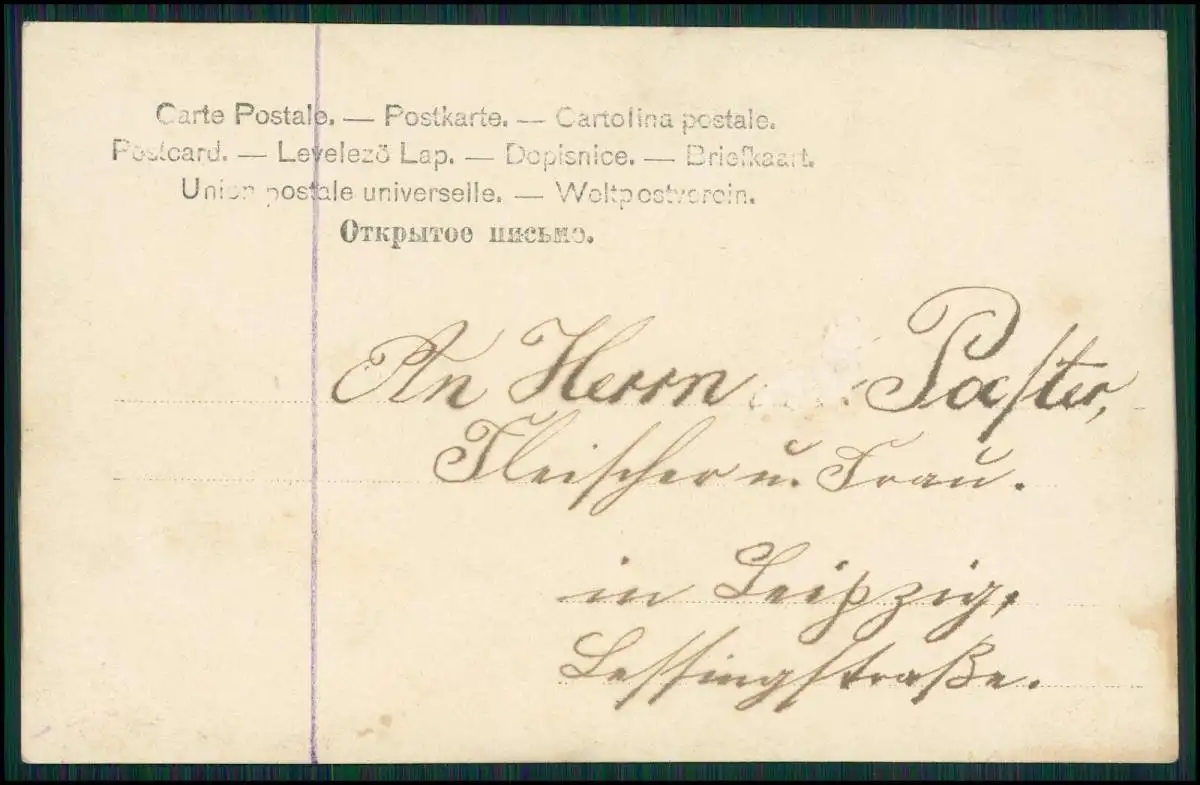 Carte Postale. — Postkarte. — Cartolina postale.
Postcard. — Levelező Lap. — Dopisnice. — Briefkaart.
Union postale universelle. — Weltpostverein.
Открытое письмо.
An Herrn Paster,
Fleischer u. Frau.
in Leipzig,
Lessingstraße.